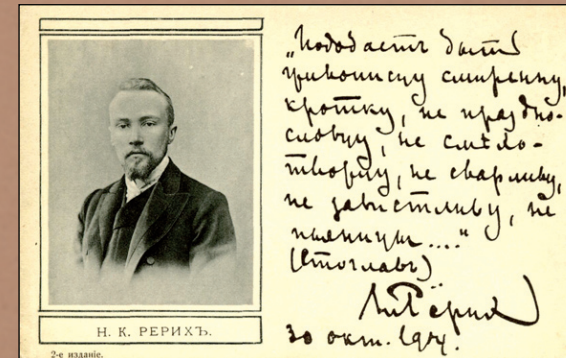 Н. К. РЕРИХЪ.
2-е изданіе.
„Подобаетъ быти
живописцу смиренну,
кротку, не праздно-
словцу, не смѣхо-
творцу, не сварливу,
не завистливу, не
пьяницы...."
(Стоглавъ)
НРёрих
30 окт. 1904.